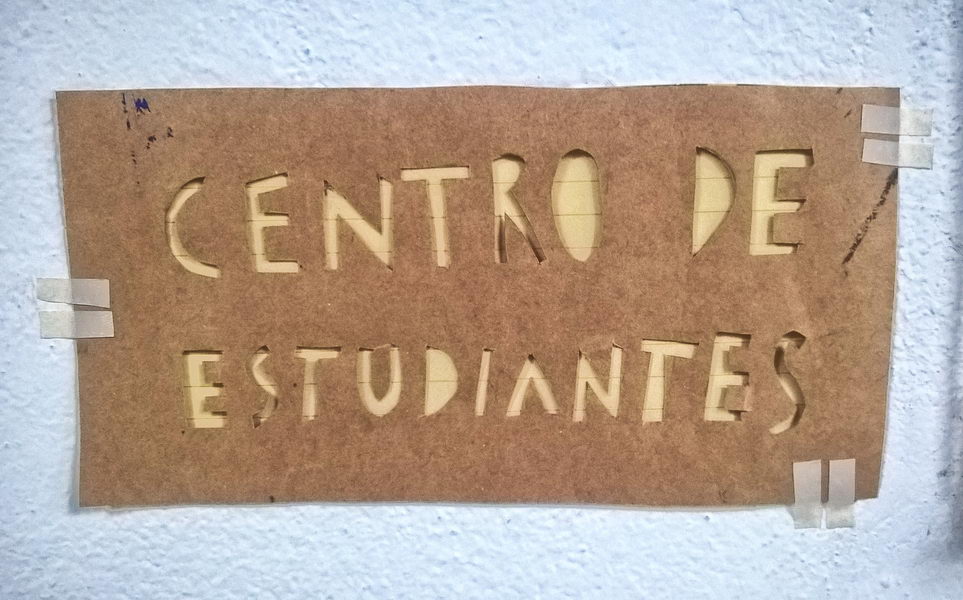 CENTRO DE
ESTUDIANTES